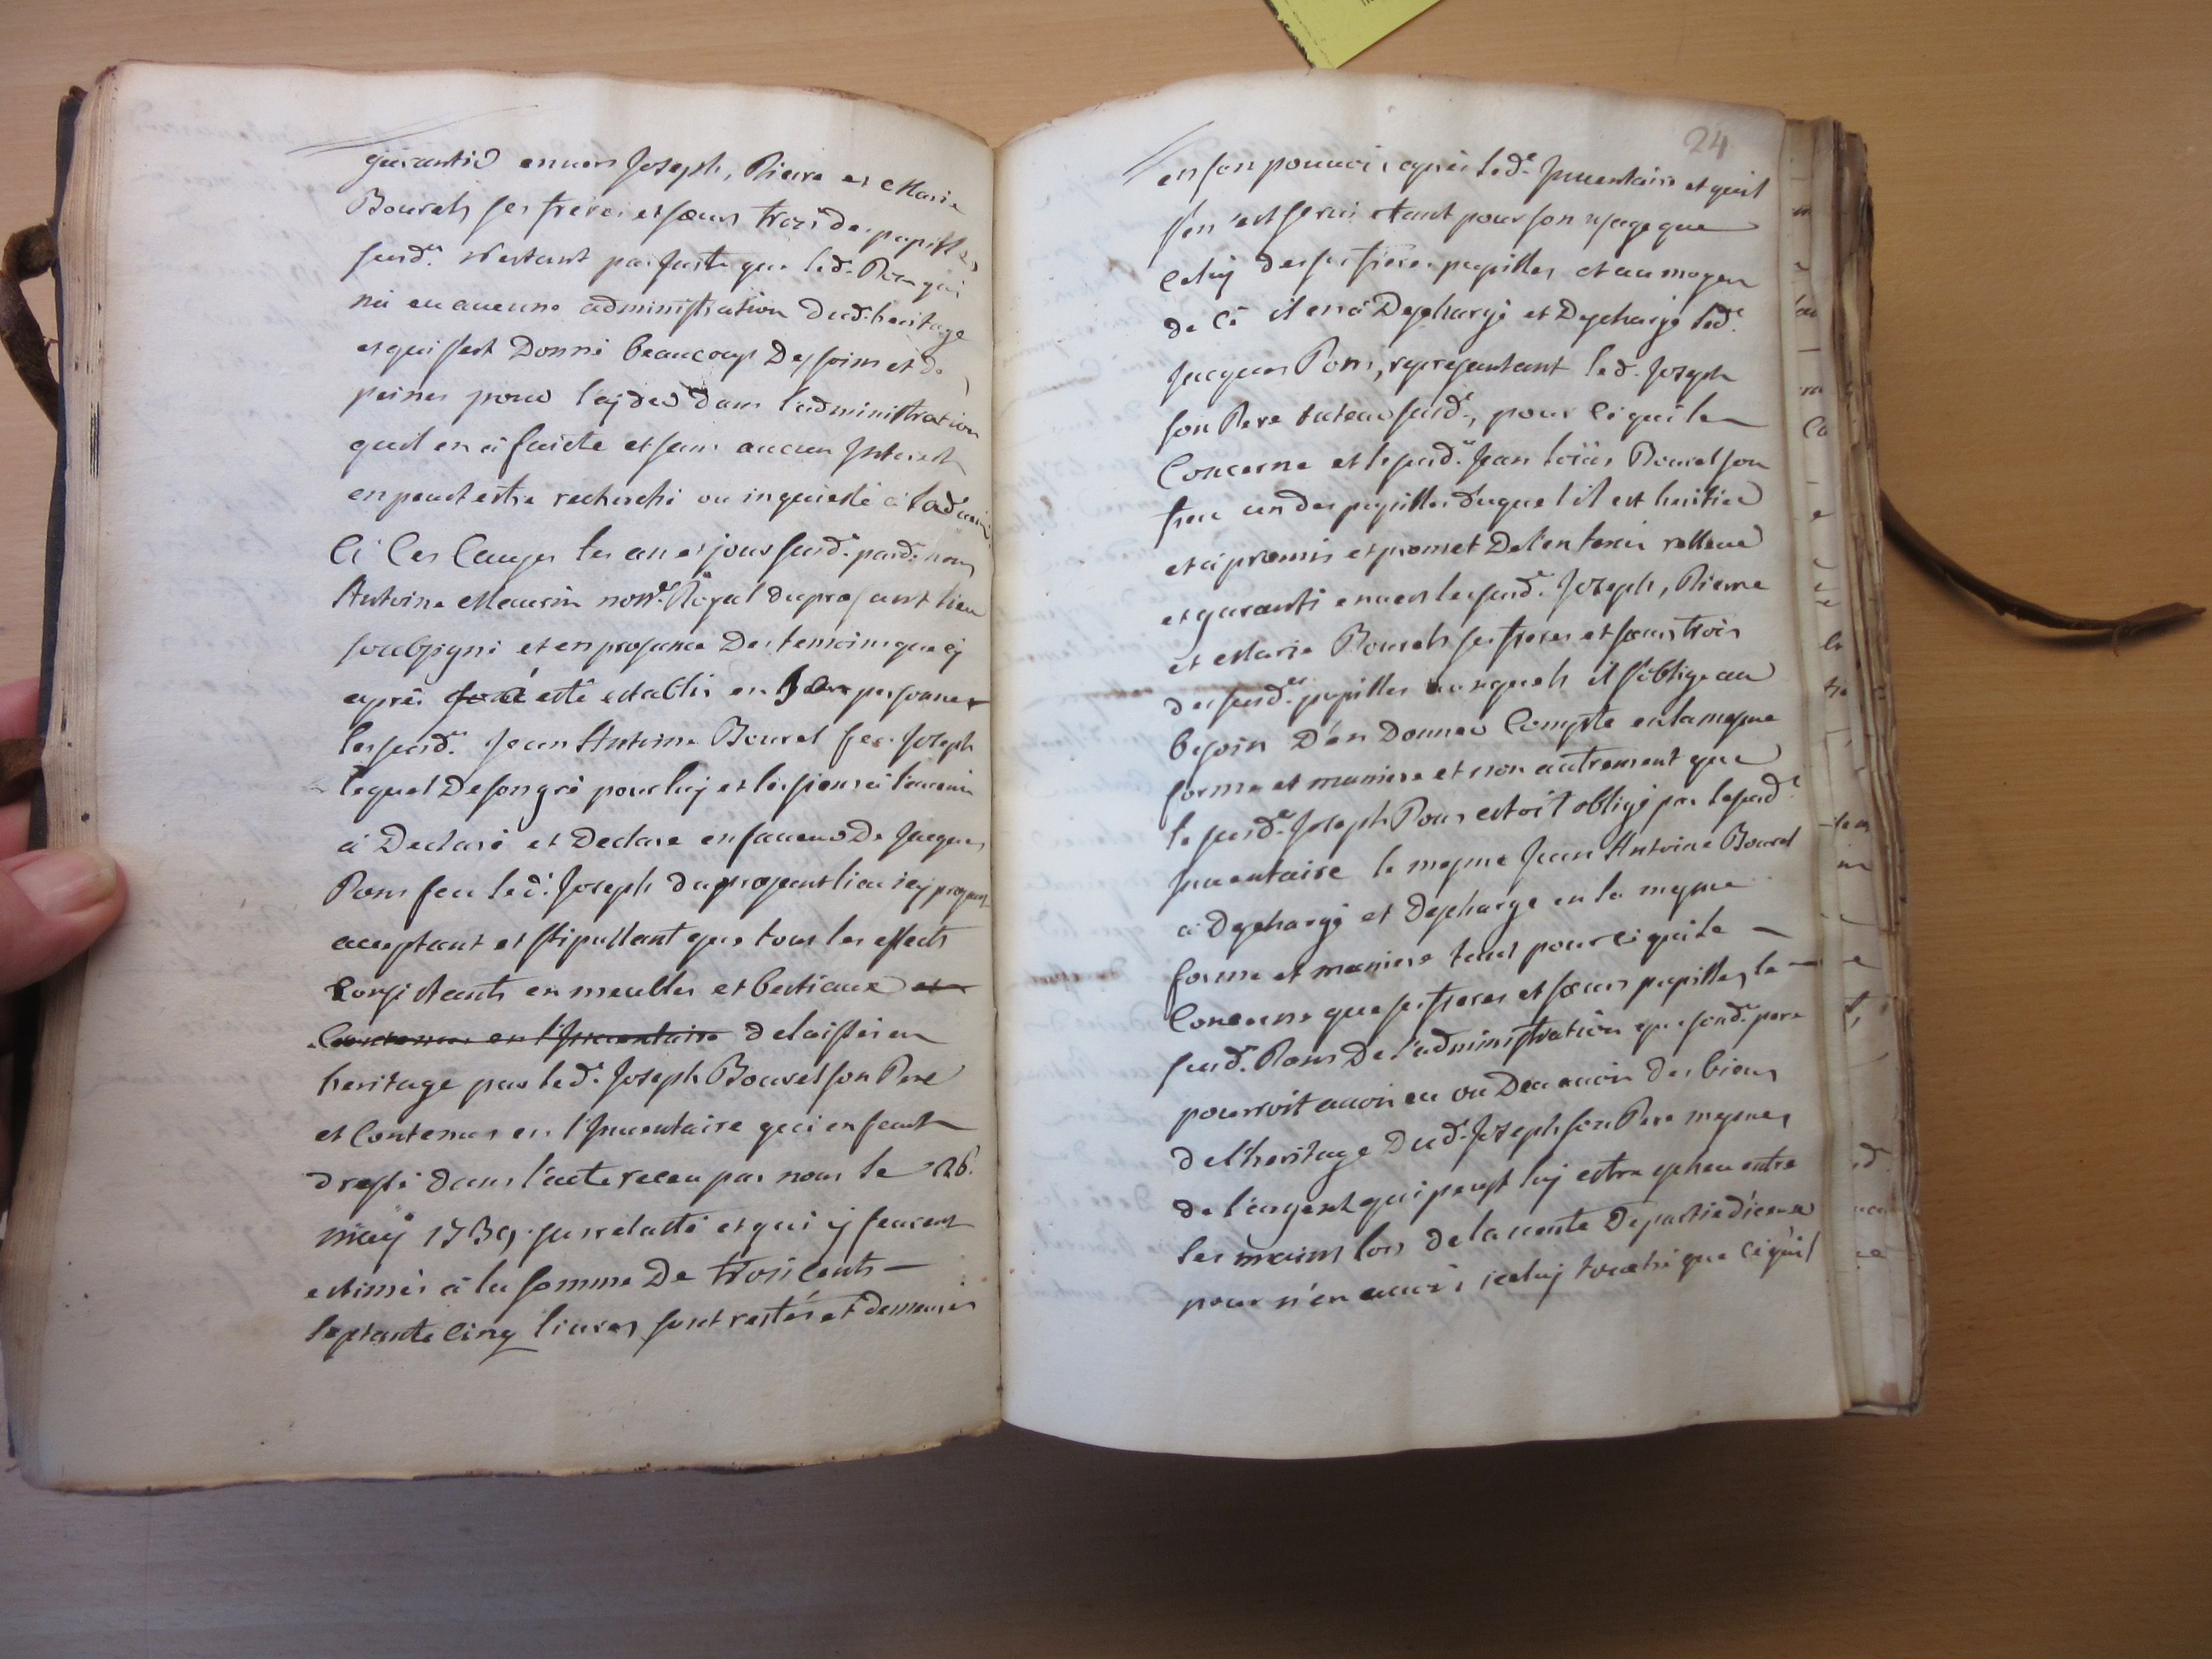 garantir envers Joseph, Pierre et Marie
Bourels ses freres et sœurs trois des pupilles
susd.es n'estant pas juste que led. Pons qui
na eu aucune administration dud. heritage
et qui sest donné beaucoup des soins et de
peines pour l'ajder dans l'administration
quil en a faicte et sans aucun Interest
en peut estre recherché ou inquieté a l'advenir
A Ces Causes les an et jour susd. pard. nous
Antoine Maurin nore. Royal du present lieu
soubsigné et en presence des temoins que cy
aprés a esté establis en personne
les susd. Jean Antoine Bourel feu Joseph
lequel de son gré pour luy et les siens a l'avenir
a declaré et declare en faveur de Jacques
Pons feu led. Joseph du present lieu icy present
acceptant et stipullant que tous les effects
Consistants en meubles et bestiaux et
Contenus en l'Inventaire delaissés en
heritage par led. Joseph Bourel son Pere
et Contenus en l'Inventaire qui en feut
dressé dans l'acte receu par nous le 26.
maÿ 1739 susrelatté et qui y feurent
estimés a la somme de trois cents
septante cinq livres sont restés et demeurés
24
en son pouvoir aprés led. Inventaire et quil
s'en est servi tant pour son usage que
celuy de ses freres pupilles et au moyen
de Cé il en a Deschargé et Descharge led.
Jacques Pons, representant led. Joseph
son Pere tuteur susd., pour Cé qui le
Concerne et le susd. Jean loüis Bourel son
frere un des pupilles duquel il est heritier
et a promis et promet De l'en tenir rellevé
et garanti envers les susd. Joseph, Pierre
et Marie Bourels ses freres et sœurs trois
des susd.es pupilles ausquels il s'oblige au
besoin D'en Donner Compte en la mesme
forme et maniere et non autrement que
le susd. Joseph Pons estoit obligé par le susd.
Inventaire le mesme Jean Antoine Bourel
a deschargé et descharge en la mesme
forme et maniere tant pour cé qui le
Concerne que ses freres et sœurs pupilles le
susd. Pons De l'administration que sond. pere
pourroit avoir eu ou deu avoir des biens
de l'heritage dud. Joseph son Pere mesmes
de l'argent qui peust luy estre escheu entre
les mains lors de la vente de partie d'iceux
pour n'en avoir iceluy touché que cé qu'il